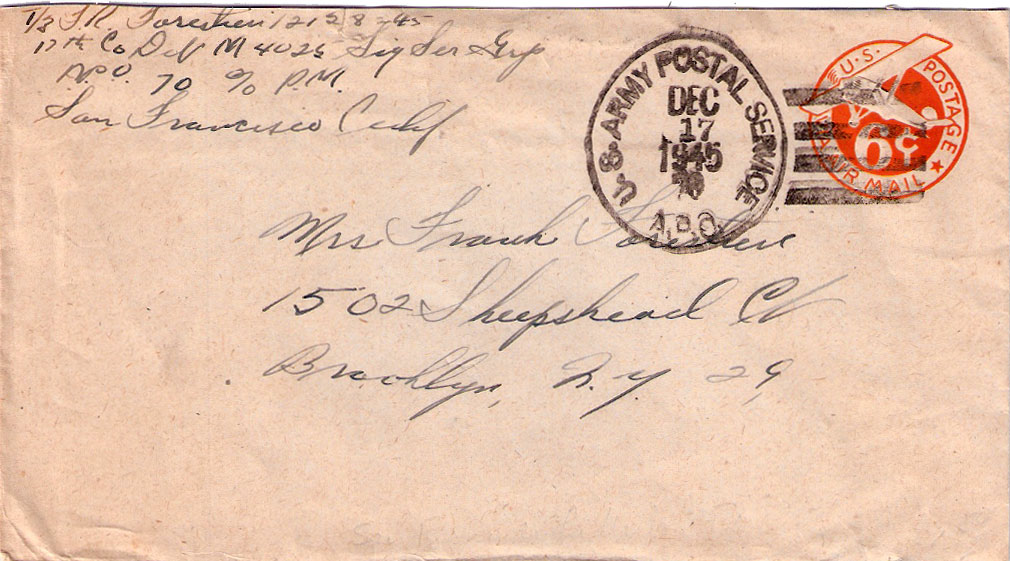 T/3 F R Forestieri 12158245
17th Co Det M 4025 Sig Ser Grp
A.P.O. 70 c/o P.M.
San Francisco Calif
U.S. ARMY POSTAL SERVICE
DEC
17
1945
70
A.P.O.
U.S. POSTAGE
6c
AIR MAIL
Mrs Frank Forestieri
1502 Sheepshead
Brooklyn, N.Y. 29